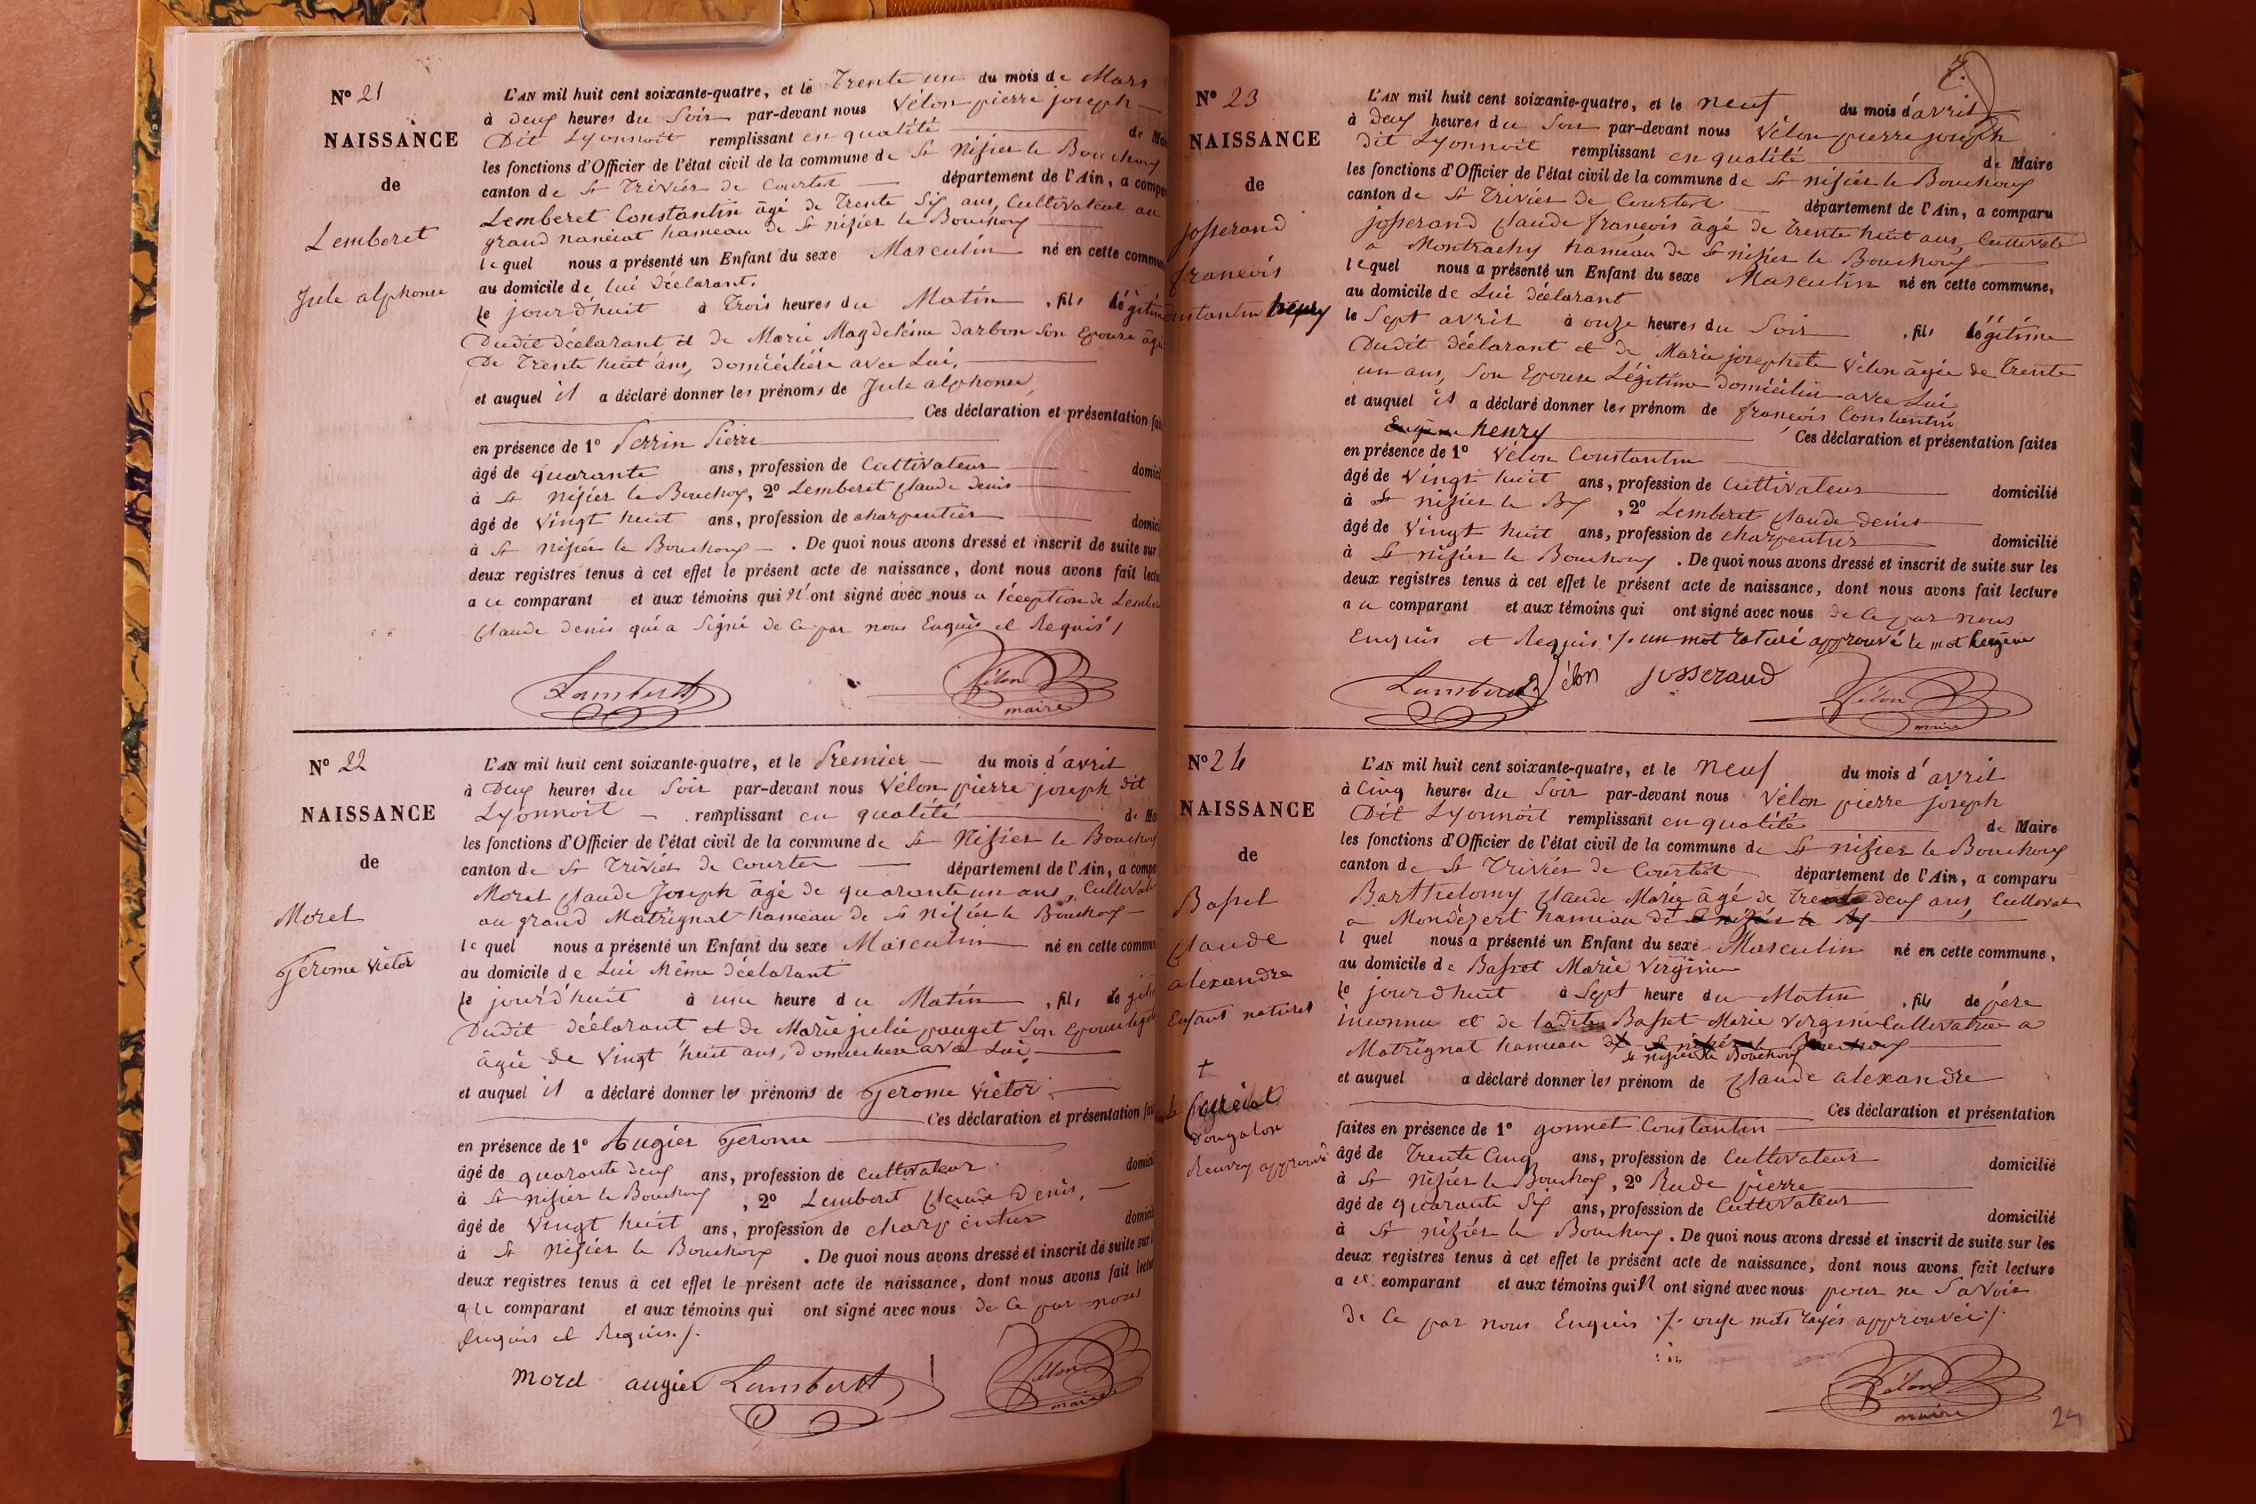 Nº 21
NAISSANCE
de
Lemberet
Jule alphonse
L'AN mil huit cent soixante-quatre, et le Trente un du mois de Mars
à deux heures du Soir par-devant nous Vélon pierre joseph
Dit Lyonnoit remplissant en qualité de Mai
les fonctions d'Officier de l'état civil de la commune de St Nisier le Bouchoux
canton de St Trivier de Courtet département de l'Ain, a compa
Lemberet Constantin âgé de Trente Six ans, Cultivateur au
grand hameau de St nisier le Bouchoux
lequel nous a présenté un Enfant du sexe Masculin né en cette commun
au domicile de lui déclarant.
le jourd'huit à Trois heures du Matin, fils légitim
Dudit déclarant et de Marie Magdeleine darbon Son Epouse âgé
De Trente huit ans, domiciliée avec Lui,
et auquel il a déclaré donner les prénoms de Jule alphonse
Ces déclaration et présentation fai
en présence de 1º Perrin Pierre
âgé de quarante ans, profession de Cultivateur domici
à St Nisier le Bouchoux, 2º Lemberet Claude denis
âgé de vingt huit ans, profession de charpentier domici
à St Nisier le Bouchoux. De quoi nous avons dressé et inscrit de suite sur
deux registres tenus à cet effet le présent acte de naissance, dont nous avons fait lectu
a ce comparant et aux témoins qui n'ont signé avec nous a l'éception de Lember
Claude denis qui a Signé de Ce par nous Enquis et Requis /
Lamberet
Vélon
maire
Nº 22
NAISSANCE
de
Morel
Jerome Victor
L'AN mil huit cent soixante-quatre, et le Premier du mois d'avril
à Deux heures du Soir par-devant nous Vélon pierre joseph dit
Lyonnoit remplissant en qualité de Ma
les fonctions d'Officier de l'état civil de la commune de St Nisier le Bouchoux
canton de St Trivier de Courtes département de l'Ain, a compa
Morel Claude Joseph âgé de quarante un ans, Cultivat
au grand Matrignat hameau de St Nisier le Bouchoux
lequel nous a présenté un Enfant du sexe Masculin né en cette commun
au domicile de Lui Même déclarant
le jourd'huit à une heure du Matin, fils légiti
Dudit déclarant et de Marie julie pauget Son Epouse légit
âgée de Vingt huit ans, Domiciliée avec Lui,
et auquel il a déclaré donner les prénoms de Jerome Victor
Ces déclaration et présentation fai
en présence de 1º Augier Jerome
âgé de quarante deux ans, profession de Cultivateur domici
à St nisier le Bouchoux, 2º Lemberet Claude Denis,
âgé de vingt huit ans, profession de charpentier domici
à St Nisier le Bouchoux. De quoi nous avons dressé et inscrit de suite sur
deux registres tenus à cet effet le présent acte de naissance, dont nous avons fait lectu
a ce comparant et aux témoins qui ont signé avec nous de Ce par nous
Enquis et Requis /.
morel augier Lamberet
Vélon
maire
7.
Nº 23
NAISSANCE
de
Josserand
francois
constantin henry
L'AN mil huit cent soixante-quatre, et le neuf du mois d'avril
à deux heures du Soir par-devant nous Vélon pierre joseph
dit Lyonnoit remplissant en qualité de Maire
les fonctions d'Officier de l'état civil de la commune de St nisier le Bouchoux
canton de St Trivier de Courtet département de l'Ain, a comparu
josserand Claude francois âgé de trente huit ans, Cultivate
a Montrachy hameau de St nisier le Bouchoux
lequel nous a présenté un Enfant du sexe Masculin né en cette commune,
au domicile de Lui déclarant
le Sept avril à onze heures du Soir, fils légitime
Dudit déclarant et de Marie josephete Vélon âgée de trente
un ans, Son Epouse Légitime domiciliée avec Lui
et auquel il a déclaré donner les prénom de francois Constantin
Eugène henry Ces déclaration et présentation faites
en présence de 1º Vélon Constantin
âgé de Vingt huit ans, profession de Cultivateur domicilié
à St nisier le Bx, 2º Lemberet Claude denis
âgé de Vingt huit ans, profession de charpentier domicilié
à St nisier le Bouchoux. De quoi nous avons dressé et inscrit de suite sur les
deux registres tenus à cet effet le présent acte de naissance, dont nous avons fait lecture
a ce comparant et aux témoins qui ont signé avec nous de Ce par nous
Enquis et Requis /. un mot raturé approuvé le mot Eugène
Lamberet Vélon Josserand
Vélon
maire
Nº 24
NAISSANCE
de
Basset
Claude
alexandre
Enfant naturel
+
approuvé
L'AN mil huit cent soixante-quatre, et le neuf du mois d'avril
à Cinq heures du Soir par-devant nous Vélon pierre joseph
Dit Lyonnoit remplissant en qualité de Maire
les fonctions d'Officier de l'état civil de la commune de St nisier le Bouchoux
canton de St Trivier de Courtet département de l'Ain, a comparu
Barthelomy Claude Marie âgé de trente deux ans, Cultivat
a Mondézert hameau de St nisier le Bx
l quel nous a présenté un Enfant du sexe Masculin né en cette commune,
au domicile de Basset Marie Virginie
le jourdhuit à Sept heure du Matin, fils de père
inconnu et de ladite Basset Marie Verginie Cultivatrice a
Matrignat hameau de St nisier le Bouchoux
St nisier le Bouchoux
et auquel a déclaré donner les prénom de Claude alexandre
Ces déclaration et présentation
faites en présence de 1º gonnet Constantin
âgé de Trente Cinq ans, profession de Cultivateur domicilié
à St Nisier le Bouchoux, 2º Rude pierre
âgé de quarante Six ans, profession de Cultivateur domicilié
à St nisier le Bouchoux. De quoi nous avons dressé et inscrit de suite sur les
deux registres tenus à cet effet le présent acte de naissance, dont nous avons fait lecture
a ce comparant et aux témoins qui n ont signé avec nous pour ne Savoir
de Ce par nous Enquis /. onze mots rayés approuvés /.
Vélon
maire
24